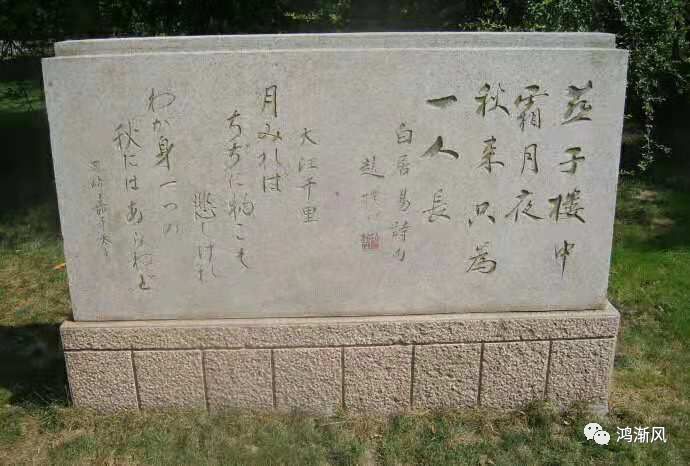 燕子樓中
霜月夜
秋来只為
一人長
白居易詩句
趙樸初
大江千里
月みれば
ちぢに物こそ
悲しけれ
わが身一つの
秋にはあらねど
岡崎嘉平太
鸿渐风